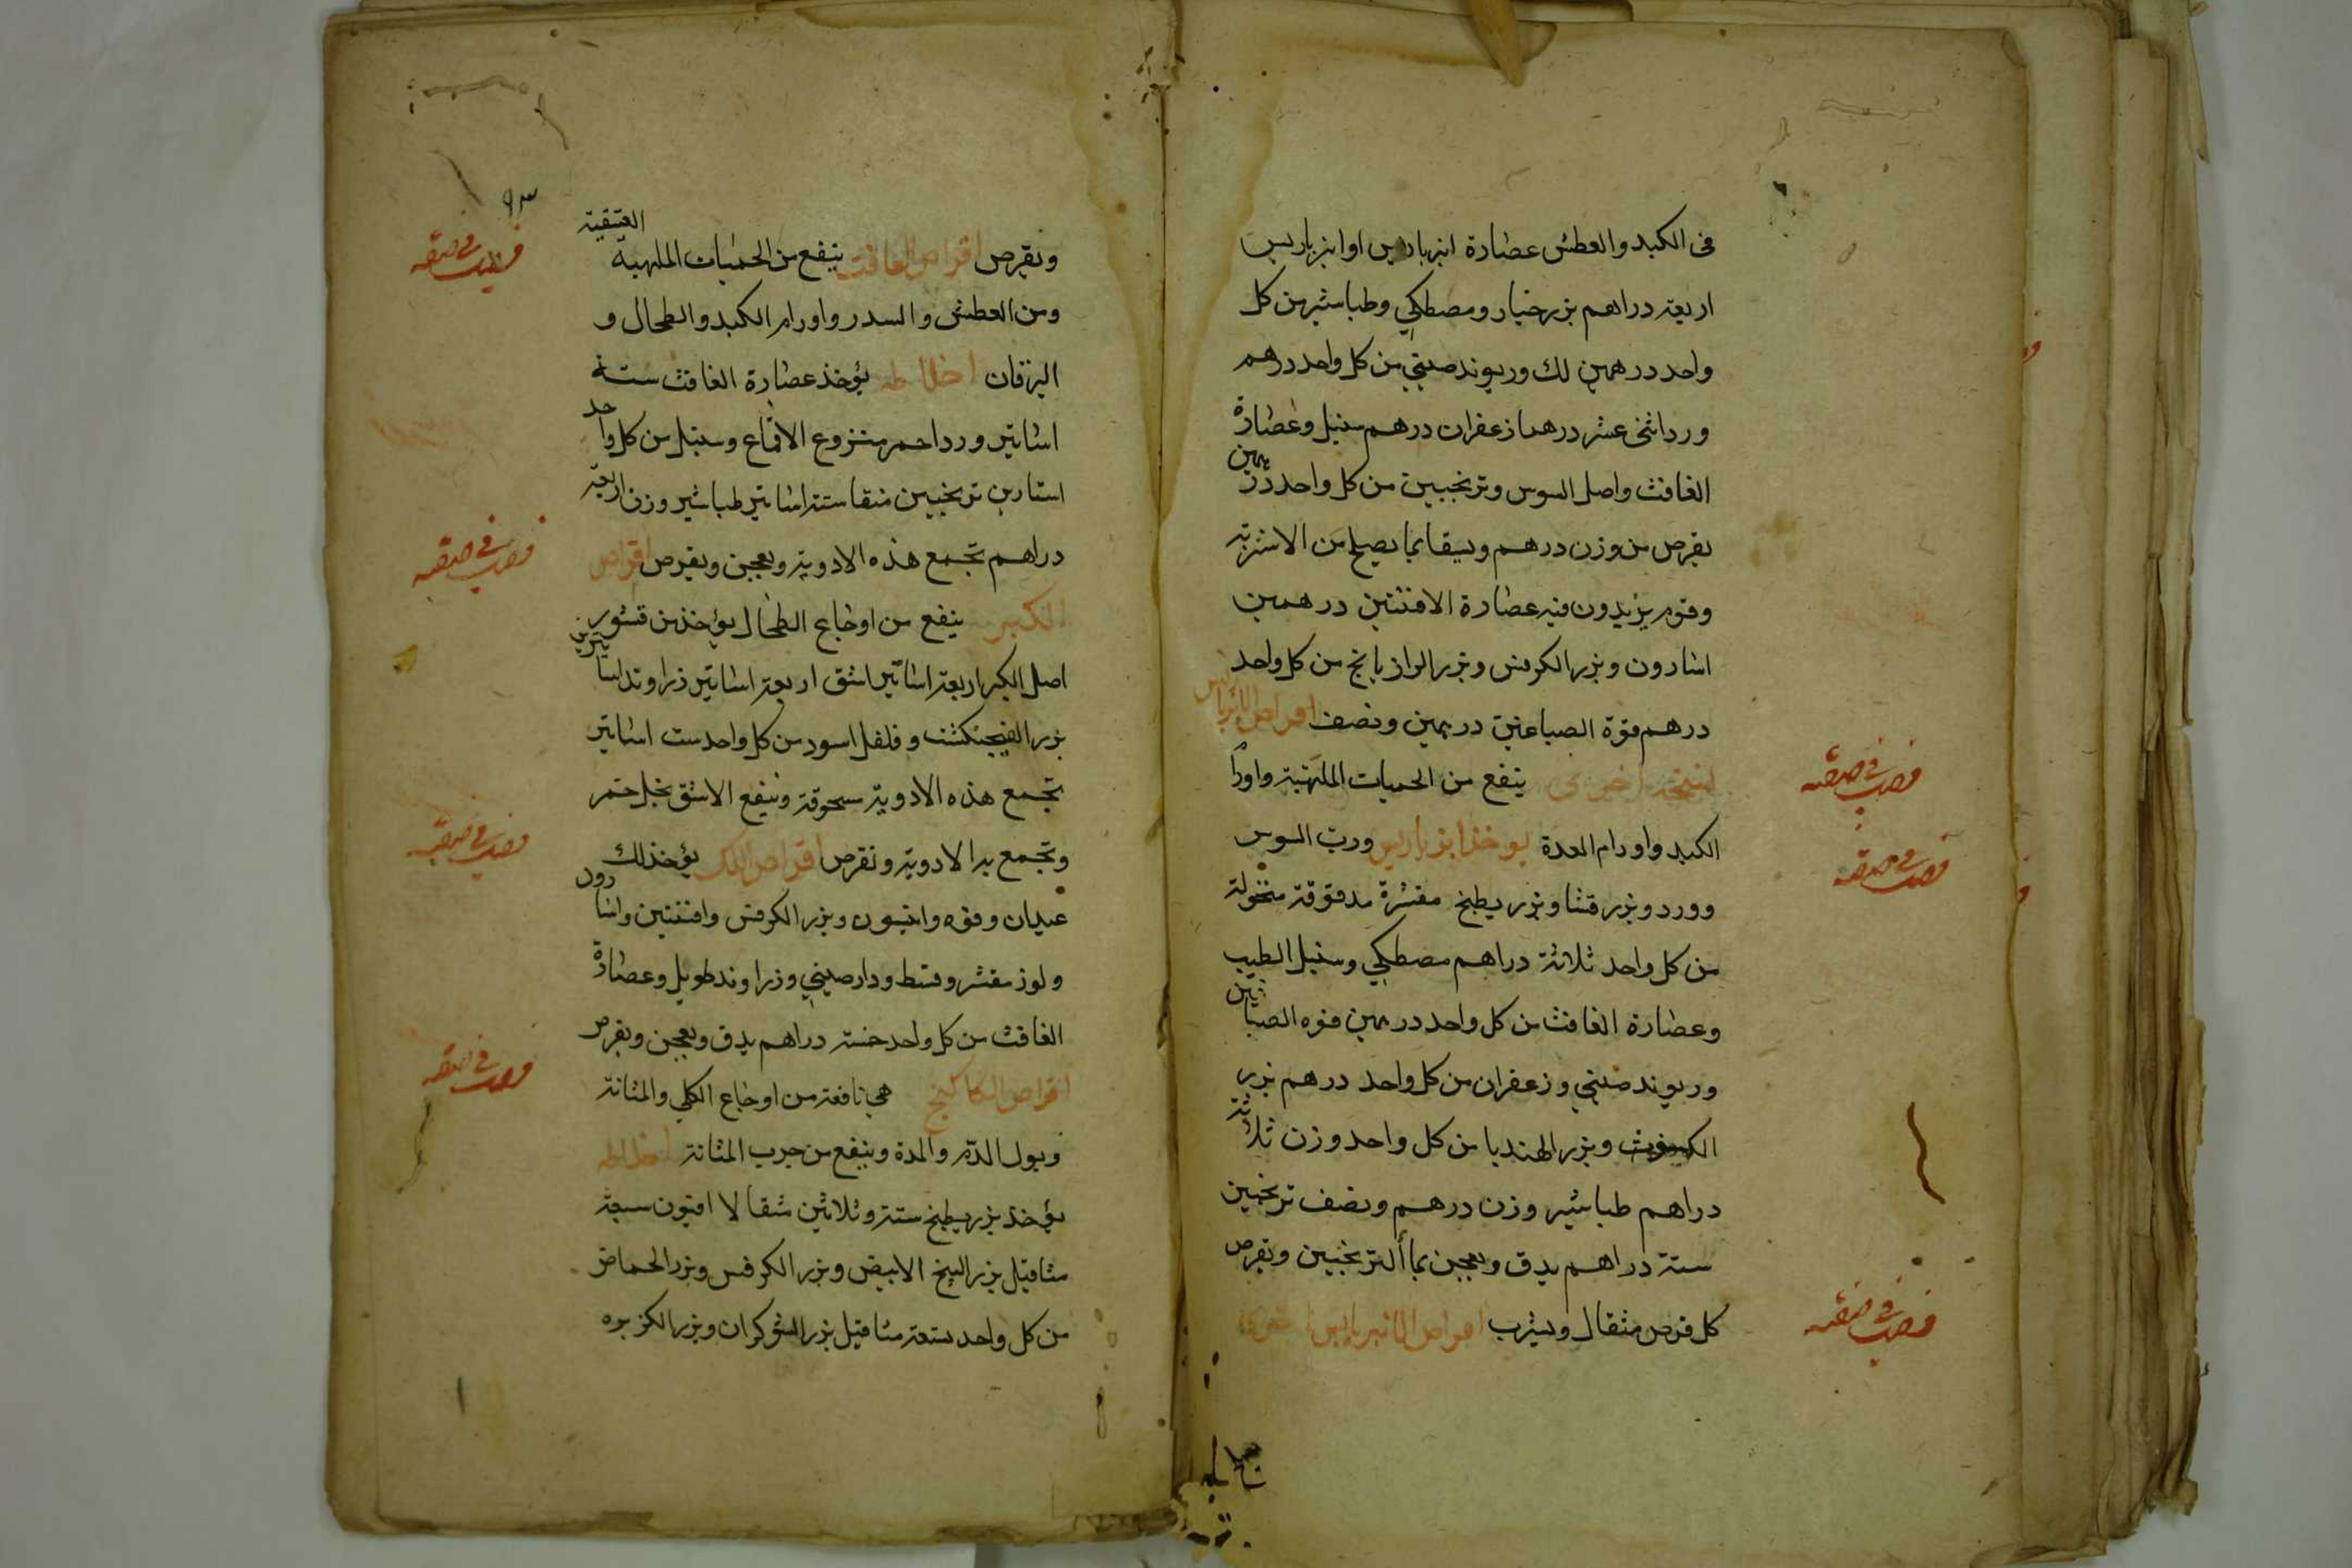 فى الكبد والعطش عصارة انبرباريس او انبرباريس
اربعة دراهم بزر خيار ومصطكي وطباشير من كل
واحد درهمين لك وريوند صيني من كل واحد درهم
ورد اثنى عشر درهما زعفران درهم سنبل وعصارة
الغافث واصل السوس وترنجبين من كل واحد درهمين
يقرص من وزن درهم ويسقا بما يصلح من الاشربة
وقوم يزيدون فيه عصارة الافنتين درهمين
اسارون وبزر الكرفس وبزر الرازيانج من كل واحد
درهم فوة الصباغين درهمين ونصف اقراص الانبرباريس
نسخة اخرى ينفع من الحميات الملهبة واورام
الكبد واورام المعدة يوخذ انبرباريس ورب السوس
وورد وبزر قثا وبزر بطيخ مقشرة مدقوقة منخولة
من كل واحد ثلاثة دراهم مصطكي وسنبل الطيب
وعصارة الغافث من كل واحد درهمين فوه الصباغين
وريوند صيني وزعفران من كل واحد درهم بزر
وبزر الهندبا من كل واحد وزن ثلاثة
دراهم طباشير وزن درهم ونصف ترنجبين
ستة دراهم يدق ويعجن بماء الترنجبين ويقرص
كل قرص مثقال ويشرب اقراص الانبرباريس
٩٣
وتقرص اقراص الغافت ينفع من الحميات الملهبة العتيقية
ومن العطش والسدر واورام الكبد والطحال و
اليرقان اخلاطه يؤخذ عصارة الغافث ستة
اساتير ورد احمر منزوع الاقماع وسنبل من كل واحد
استارين ترنجبين منقا ستة اساتير طباشير وزن اربعة
دراهم تجمع هذه الادوية ويعجن ويقرص اقراص
الكبر ينفع من اوجاع الطحال يؤخذ من قشور
اصل الكبر اربعة اساتير اشق اربعة اساتير زراوند استارين
بزر الفنجنكشت وفلفل اسود من كل واحد ست اساتير
تجمع هذه الادوية مسحوقة وينقع الاشق بخل خمر
وتجمع به الادوية وتقرص اقراص اللك يؤخذ لك
عيدان وفوه وانيسون وبزر الكرفس وافنتين واسارون
ولوز مقشر وقسط ودارصيني وزراوند طويل وعصارة
الغافث من كل واحد خمسة دراهم يدق ويعجن ويقرص
اقراص الكاكنج هي نافعة من اوجاع الكلي والمثانة
وبول الدم والمدة وينفع من جرب المثانة اخلاطه
يؤخذ بزر بطيخ ستة وثلاثين مثقالا افيون سبعة
مثاقيل بزر البنج الابيض وبزر الكرفس وبزر الحماض
من كل واحد سبعة مثاقيل بزر الشوكران وبزر الكزبره